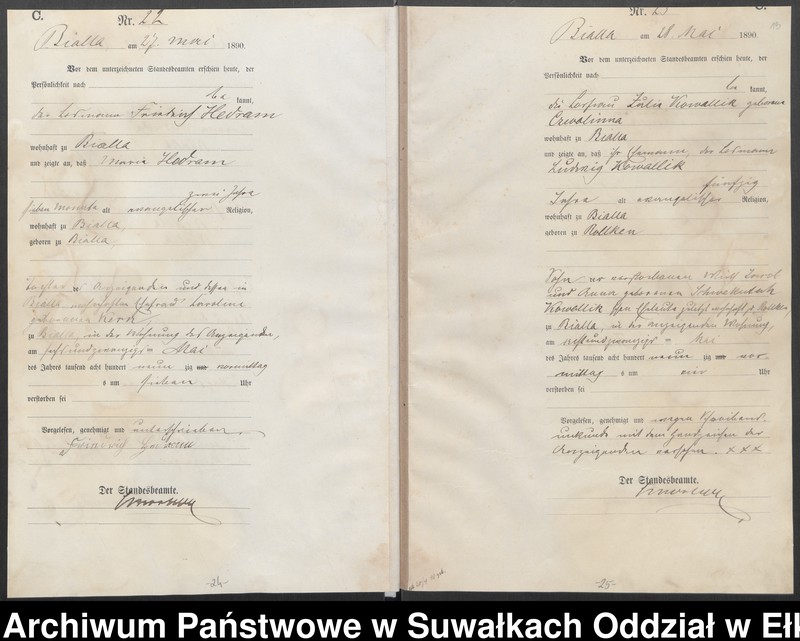 C.
Nr. 22
Bialla am 27. Mai 1890.
Vor dem unterzeichneten Standesbeamten erschien heute, der
Persönlichkeit nach
be kannt,
der Losmann Friedrich Hedram
wohnhaft zu Bialla
und zeigte an, daß Maria Hedram
zwei Jahre
sieben Monate alt evangelischer Religion,
wohnhaft zu Bialla,
geboren zu Bialla,
Tochter des Anzeigenden und dessen in
Bialla Ehefrau Caroline
geborenen
zu Bialla, in der Wohnung des Anzeigenden,
am sechsundzwanzigsten Mai
des Jahres tausend acht hundert neunzig vormittag
s um sieben Uhr
verstorben sei
Vorgelesen, genehmigt und unterschrieben
Friedrich
Der Standesbeamte.
-24-
C.
Nr. 23
Bialla am 28 Mai 1890
Vor dem unterzeichneten Standesbeamten erschien heute, der
Persönlichkeit nach
be kannt,
die Losfrau Julie Kowallik geborene
Czwalinna
wohnhaft zu Bialla
und zeigte an, daß ihr Ehemann, der Losmann
Ludwig Kowallik
fünfzig
Jahre alt evangelischer Religion,
wohnhaft zu Bialla
geboren zu Rollken
Sohn der verstorbenen
und Anna geborenen
Kowallik Eheleute zuletzt wohnhaft zu Rollken,
zu Bialla, in der Wohnung,
am achtundzwanzigsten Mai
des Jahres tausend acht hundert neun zig vor
mittag s um vier Uhr
verstorben sei
Vorgelesen, genehmigt und wegen Schreibens
unkunde mit dem Handzeichen der
Anzeigenden versehen. XXX
Der Standesbeamte.
-25-
Archiwum Państwowe w Suwałkach Oddział w Eł